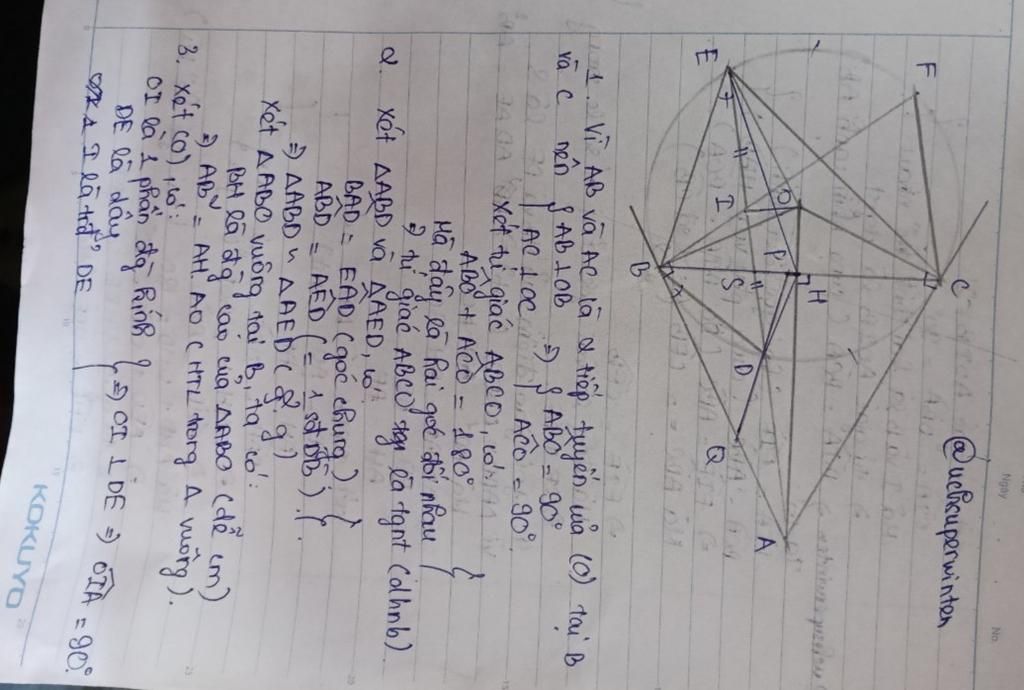 Ngày
No.
@uchkuperwinten
F
E
I
O
B
S
P
H
C
D
Q
A
1. Vì AB và AC là 2 tiếp tuyến của (O) tại B
và C nên { AB ⊥ OB => { ABO = 90°
AC ⊥ OC ACO = 90°
Xét tứ giác ABCO, có:
ABO + ACO = 180°
Mà đây là hai góc đối nhau }
=> tứ giác ABCO là tgnt (dhnb).
2. Xét ΔABD và ΔAED, có
BAD = EAD (góc chung) }
ABD = AED ( = 1/2 sđ DB) }
=> ΔABD ~ ΔAED (g.g)
Xét ΔABO vuông tại B, ta có:
BH là đg cao của ΔABO (dễ cm)
=> AB² = AH. AO (HTL trong Δ vuông).
3. Xét (O), có:
OI là 1 phần đg kính }
DE là dây } => OI ⊥ DE => OIA = 90°.
I là tđ DE
KOKUYO